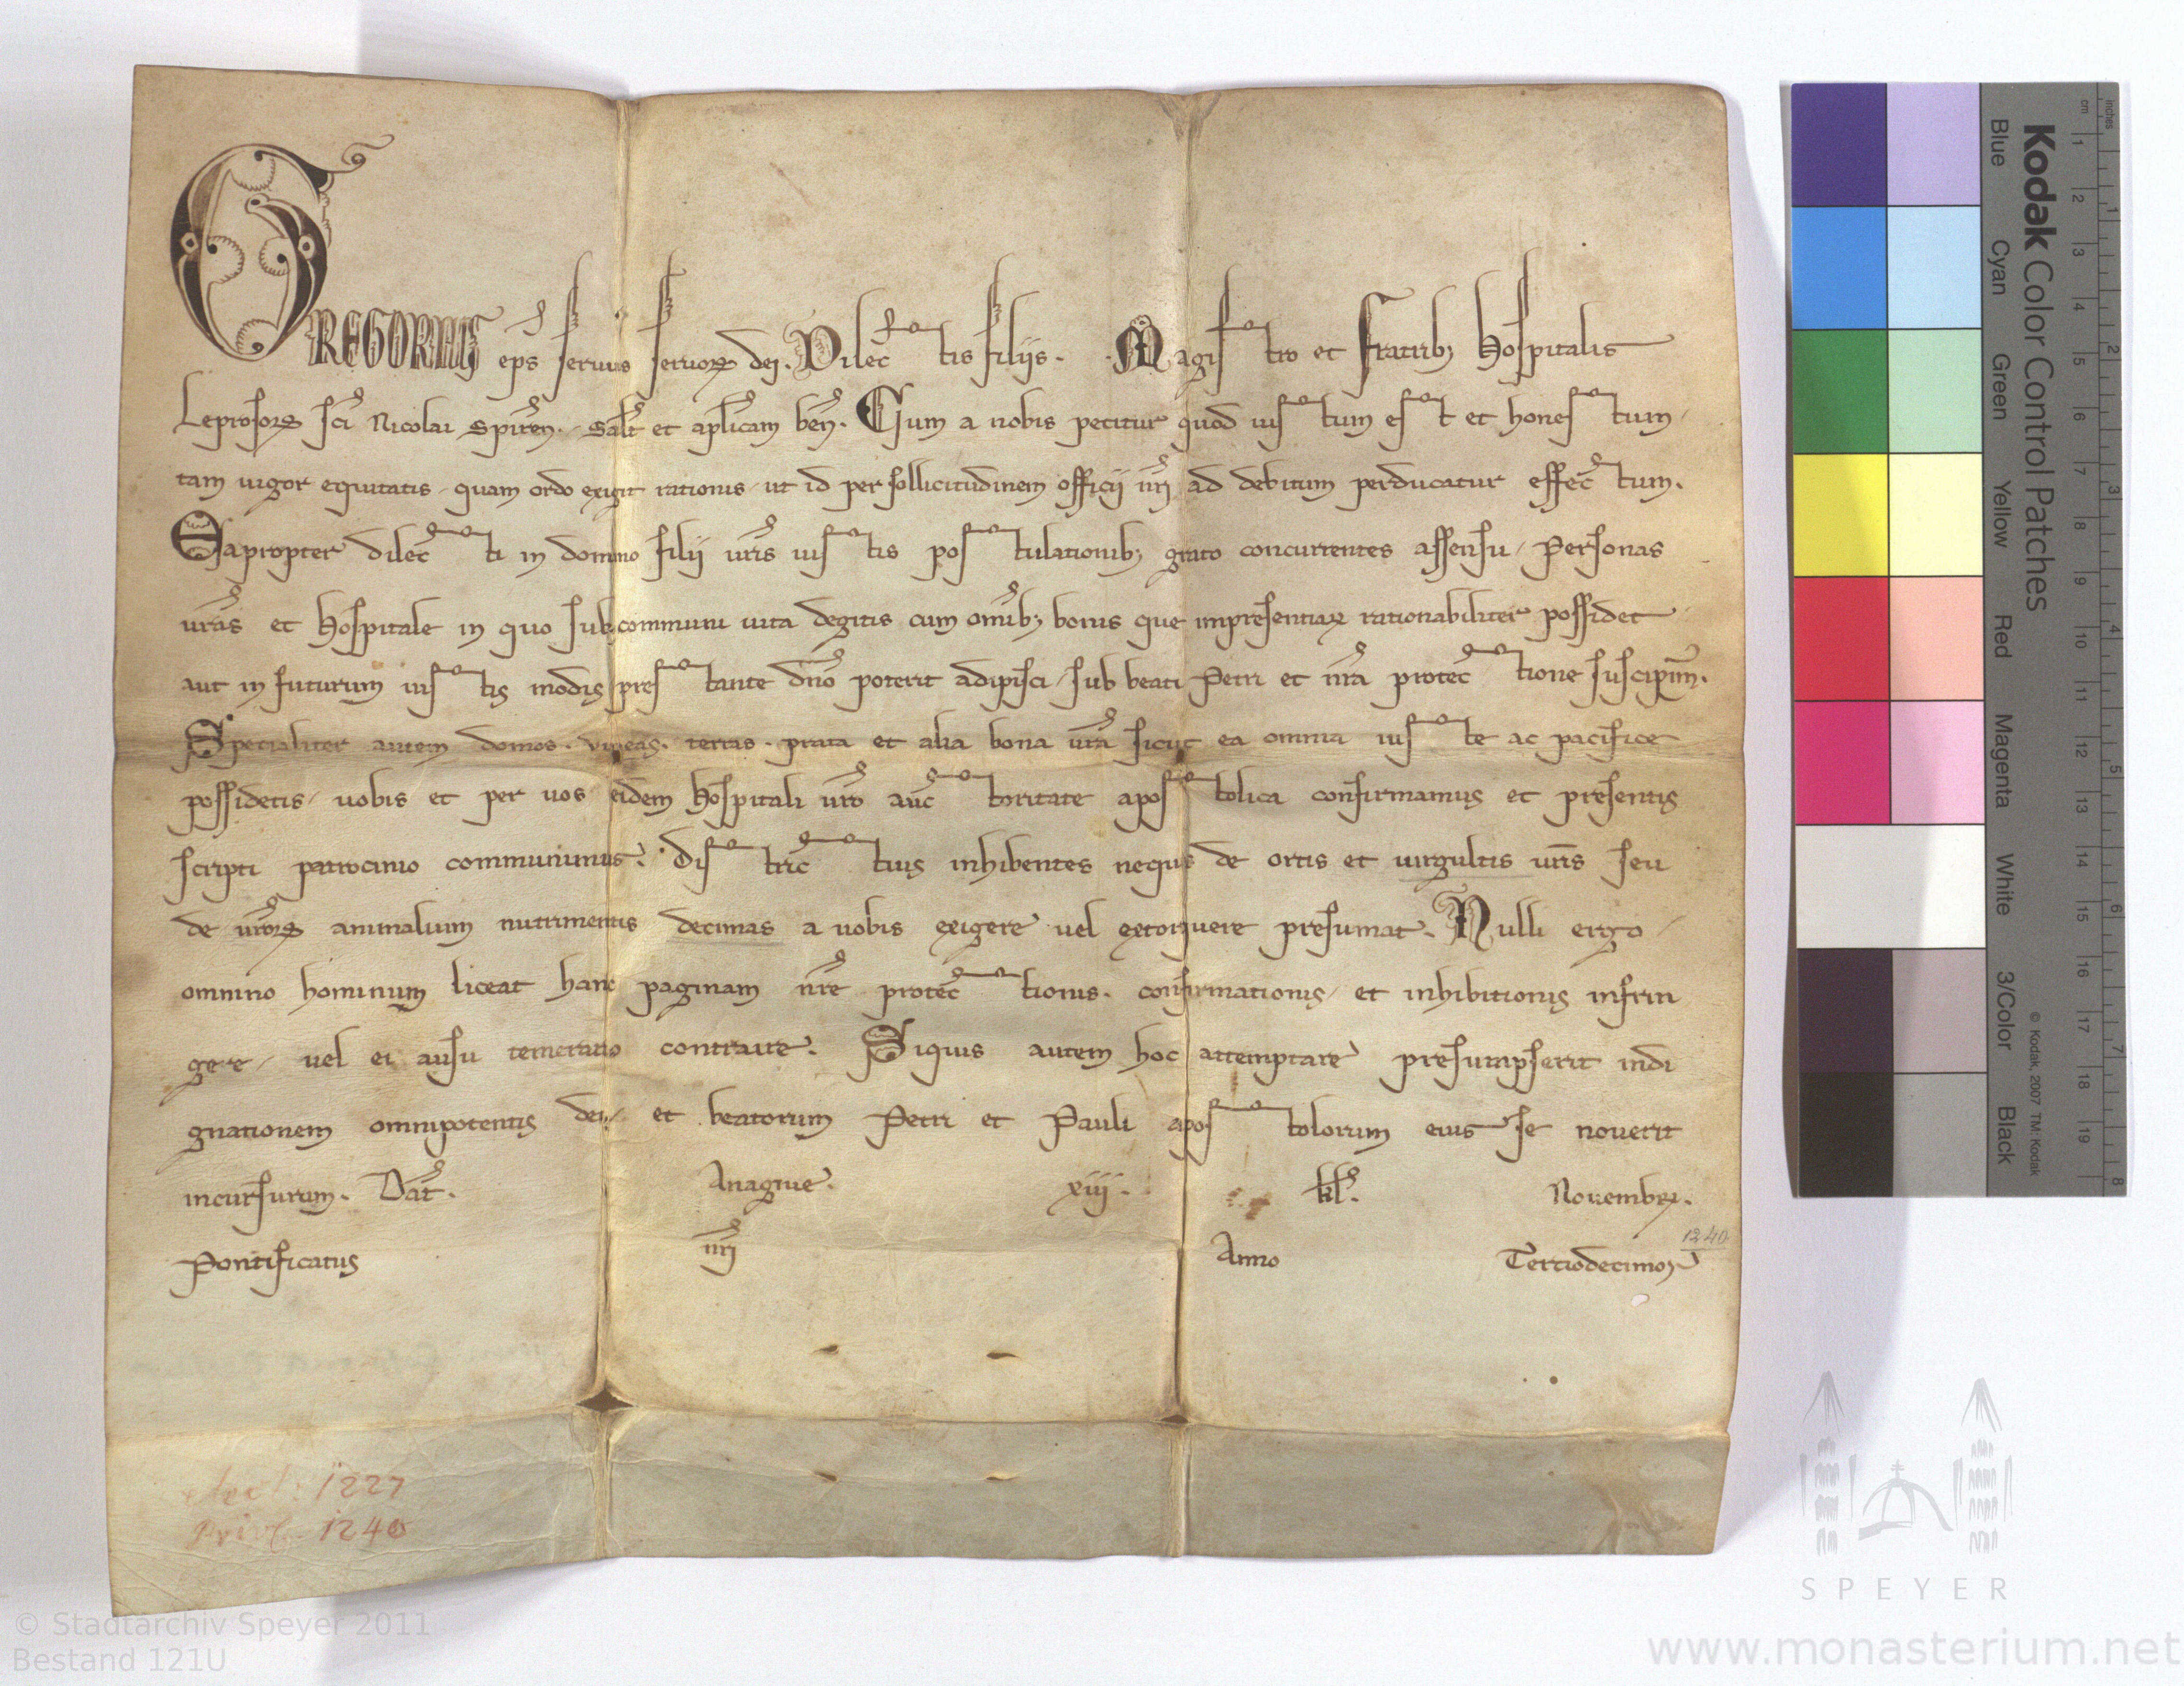 GREGORIUS eps seruus seruoꝝ dei. Dilectis filiis. Magistro et fratribꝫ Hospitalis
Leprosoꝝ sci Nicolai Spiren. salt et aplicam ben. Cum a nobis petitur quod iustum est et honestum,
tam uigor equitatis, quam ordo exigit rationis, ut id per sollicitudinem officij nri ad debitum perducatur effectum.
Eapropter dilecti in domino filij uris iustis postulationibꝫ grato concurrentes assensu, Personas
uras et Hospitale in quo sub communi uita degitis cum omibꝫ bonis que impresentiaꝝ rationabiliter possidet
aut in futurum iustis modis prestante dno poterit adipisci, sub beati Petri et nra protectione suscipim.
Specialiter autem domos. vineas. terras. prata et alia bona ura sicut ea omnia iuste ac pacifice
possidetis, uobis et per uos eidem Hospitali uro auctoritate apostolica confirmamus et presentis
scripti patrocinio communimus. Districtius inhibentes nequis de ortis et uirgultis uris seu
de uroꝝ animalium nutrimentis decimas a uobis exigere uel extorquere presumat. Nulli ergo,
omnino hominum liceat hanc paginam nre protectionis. confirmationis, et inhibitionis infrin
gere, uel ei ausu temerario contraire. Siquis autem hoc attemptare presumpserit indi
gnationem omnipotentis dei, et beatorum Petri et Pauli apostolorum eius se nouerit
incursurum. Dat. Anagnie. xiij. kl. Nouembꝝ.
Pontificatus nri Anno Tertiodecimo
1240
1227
Priv. 1240
Kodak Color Control Patches
Blue Cyan Green Yellow Red Magenta White 3/Color Black
© Kodak, 2007 TM: Kodak
cm 1 2 3 4 5 6 7 8 9 10 11 12 13 14 15 16 17 18 19
inches 1 2 3 4 5 6 7 8
SPEYER
© Stadtarchiv Speyer 2011
Bestand 121U
www.monasterium.net